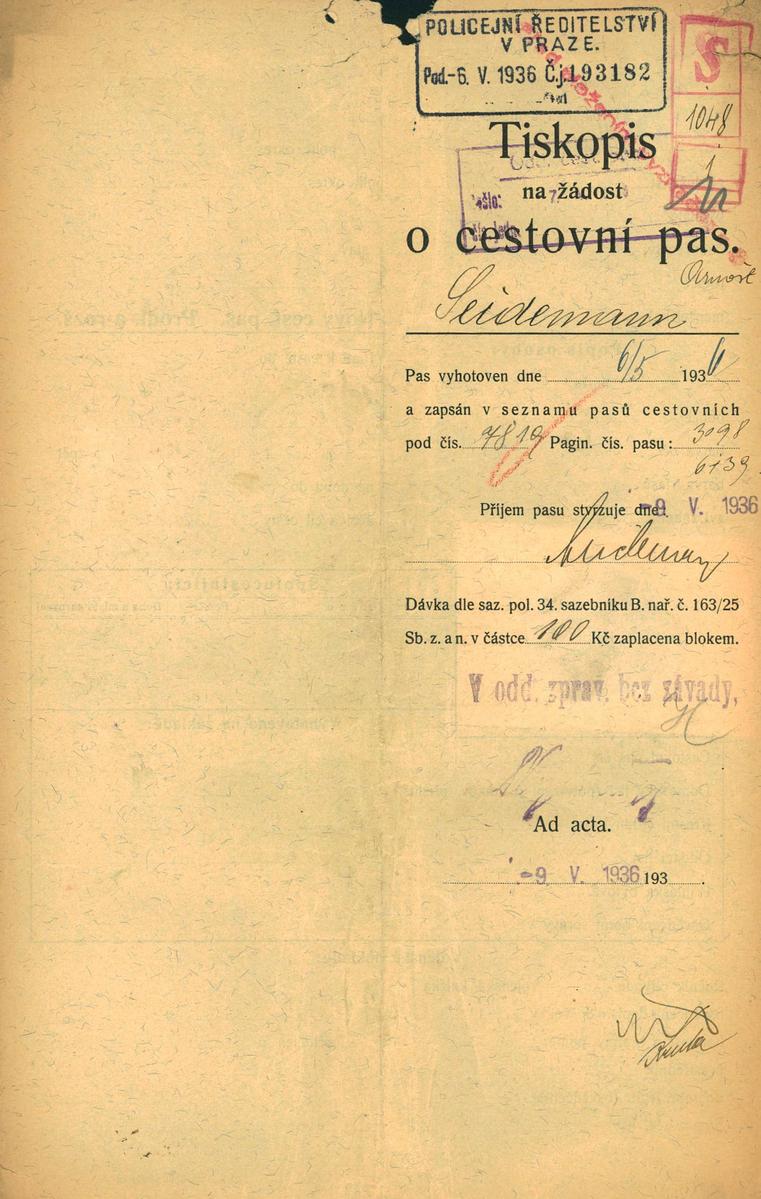 POLICEJNÍ ŘEDITELSTVÍ
V PRAZE.
Pod.-6. V. 1936 Č.j.193182
S
1048
1
Tiskopis
na žádost
o cestovní pas.
Arnošt
Seidemann
Pas vyhotoven dne 6/5 1936
a zapsán v seznamu pasů cestovních
pod čís. 7819 Pagin. čís. pasu: 3098
6139
Příjem pasu stvrzuje dne: -9 V. 1936
Dávka dle saz. pol. 34. sazebníku B. nař. č. 163/25
Sb. z. a n. v částce 100 Kč zaplacena blokem.
V odd. zprav. bez závady,
Ad acta.
-9 V. 1936 193 .